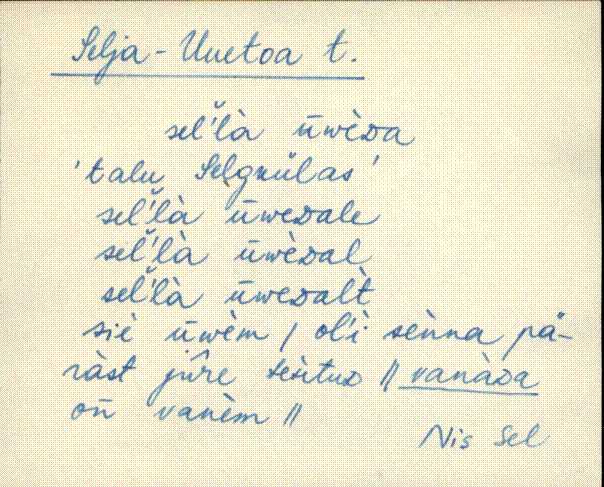 Selja-Uuetoa t.
sel̆'là ūwèᴅa
'talu Selgküläs'
sel̆'là ūweᴅale
sel̆'là ūwèᴅal
sel̆'là ūweᴅalt̀
siè ūwèm / ol'i sènna pä-
ràst jūre tèìtuᴅ // vanàᴅa
oñ vanèm //
Nis Sel